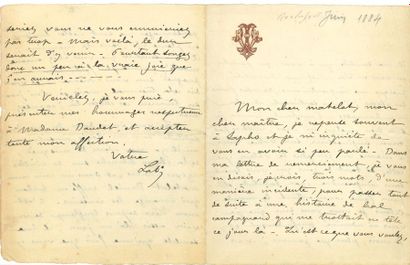 seriez vous ne vous ennuieriez
par trop — Mais voilà, le dur
serait d'y venir — Pourtant songez
donc un peu à la vraie joie que
j'en aurais
Veuillez, je vous prie,
présenter mes hommages respectueux
à Madame Daudet, et acceptez
toute mon affection.
Votre
Loti
Rochefort Juin 1884
Mon cher matelot, mon
cher maître, je repense souvent
à Sapho et je m'inquiète de
vous en avoir si peu parlé — Dans
ma lettre de remerciement, je vous
en disais, je crois, trois mots, d'une
manière incidente, pour passer tout
de suite à une histoire de bal
campagnard qui me trottait en tête
ce jour là — Qu'est ce que vous voulez,